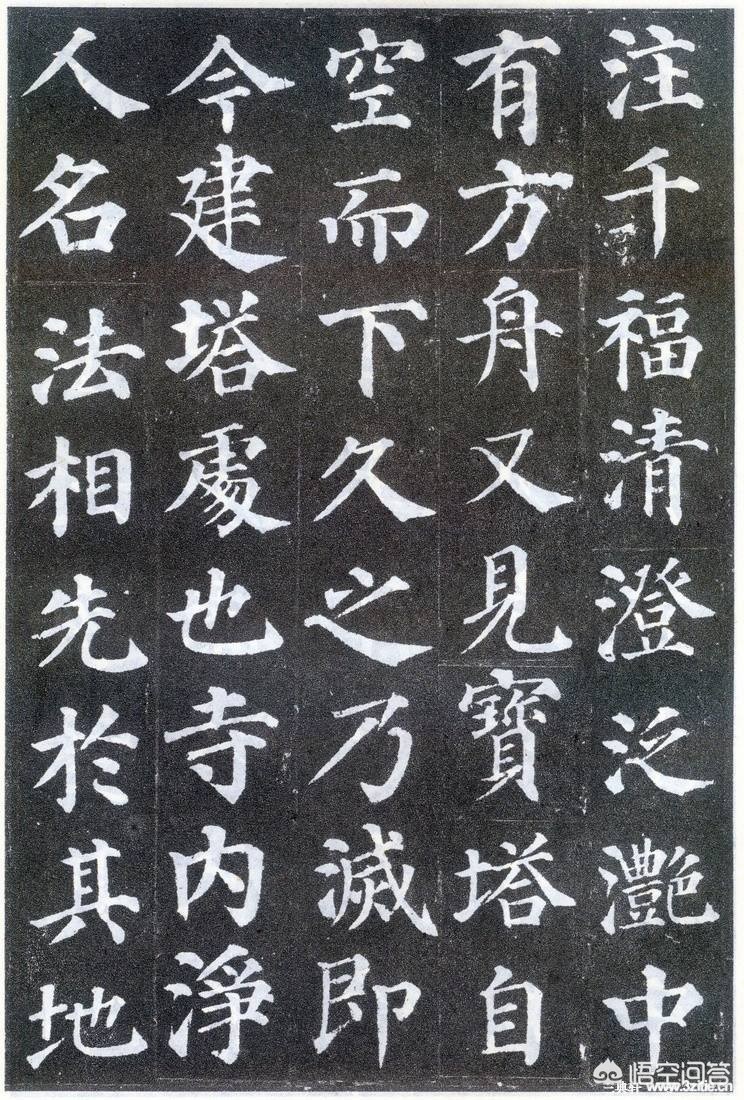 注千福清澄泛灔中
有方舟又見寶塔自
空而下久之乃滅即
今建塔處也寺内淨
人名法相先於其地
悟空问答
三典轩 www.3zitie.cn